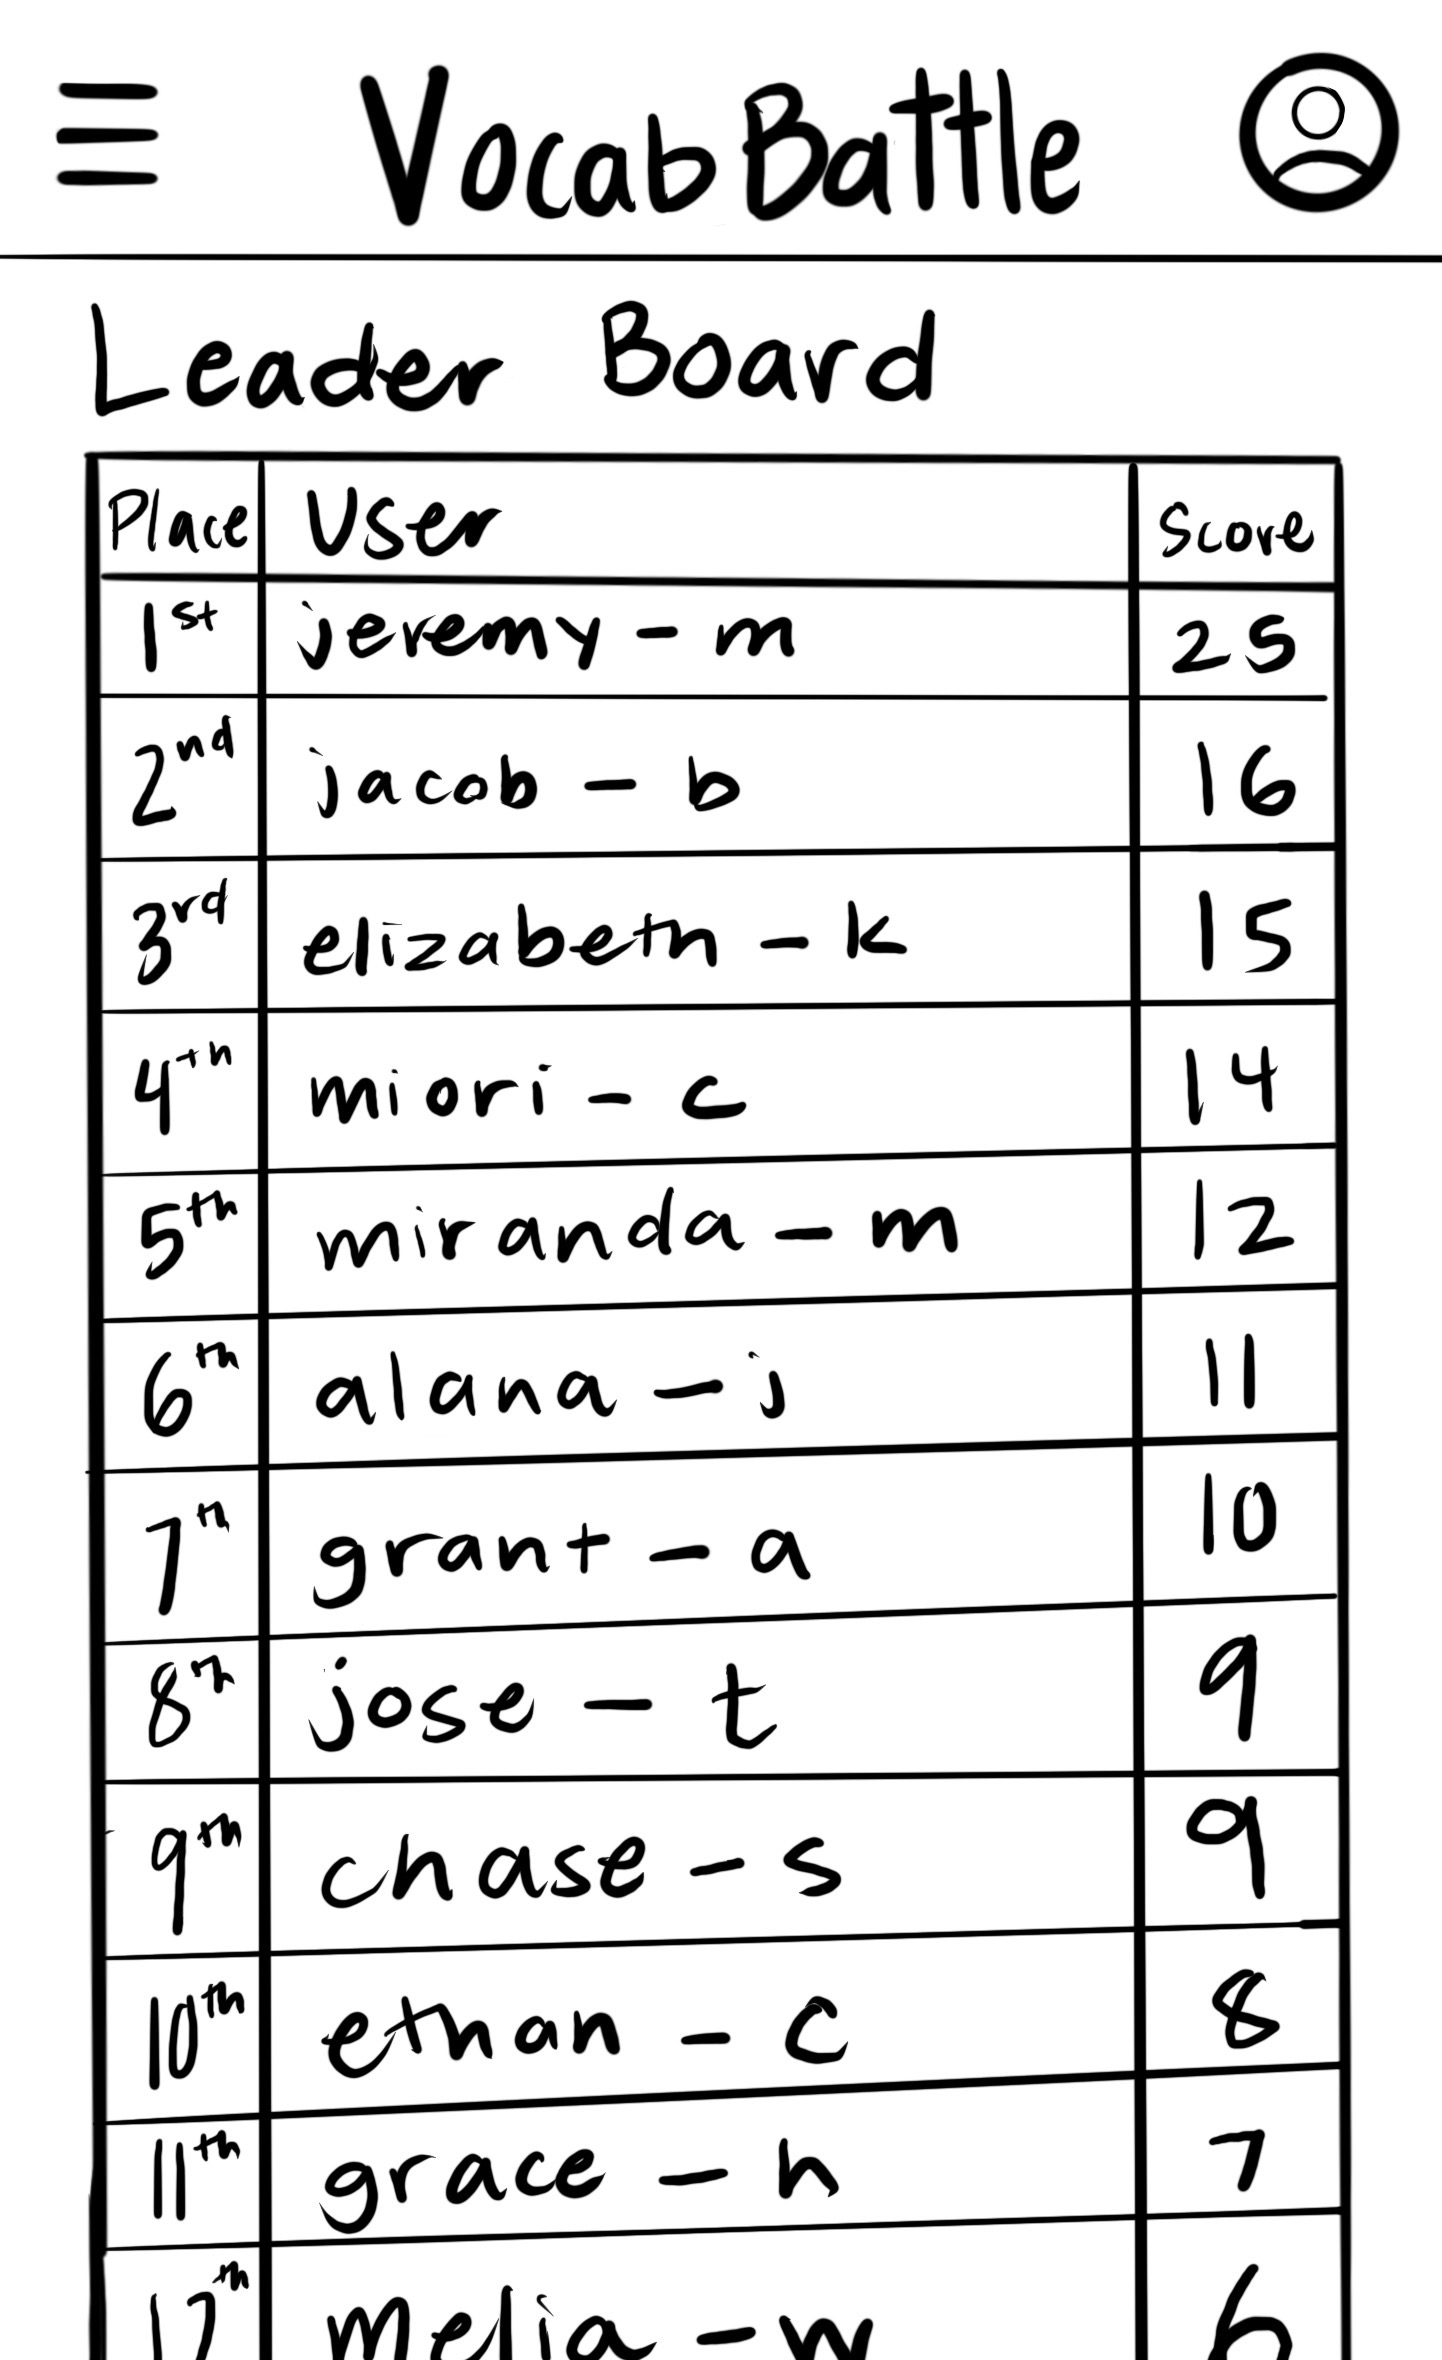 VocabBattle
Leader Board
Place User Score
1st jeremy - m 25
2nd jacob - b 16
3rd elizabeth - k 15
4th miori - c 14
5th miranda - m 12
6th alana - j 11
7th grant - a 10
8th jose - t 9
9th chase - s 9
10th ethan - c 8
11th grace - h 7
12th melia - w 6